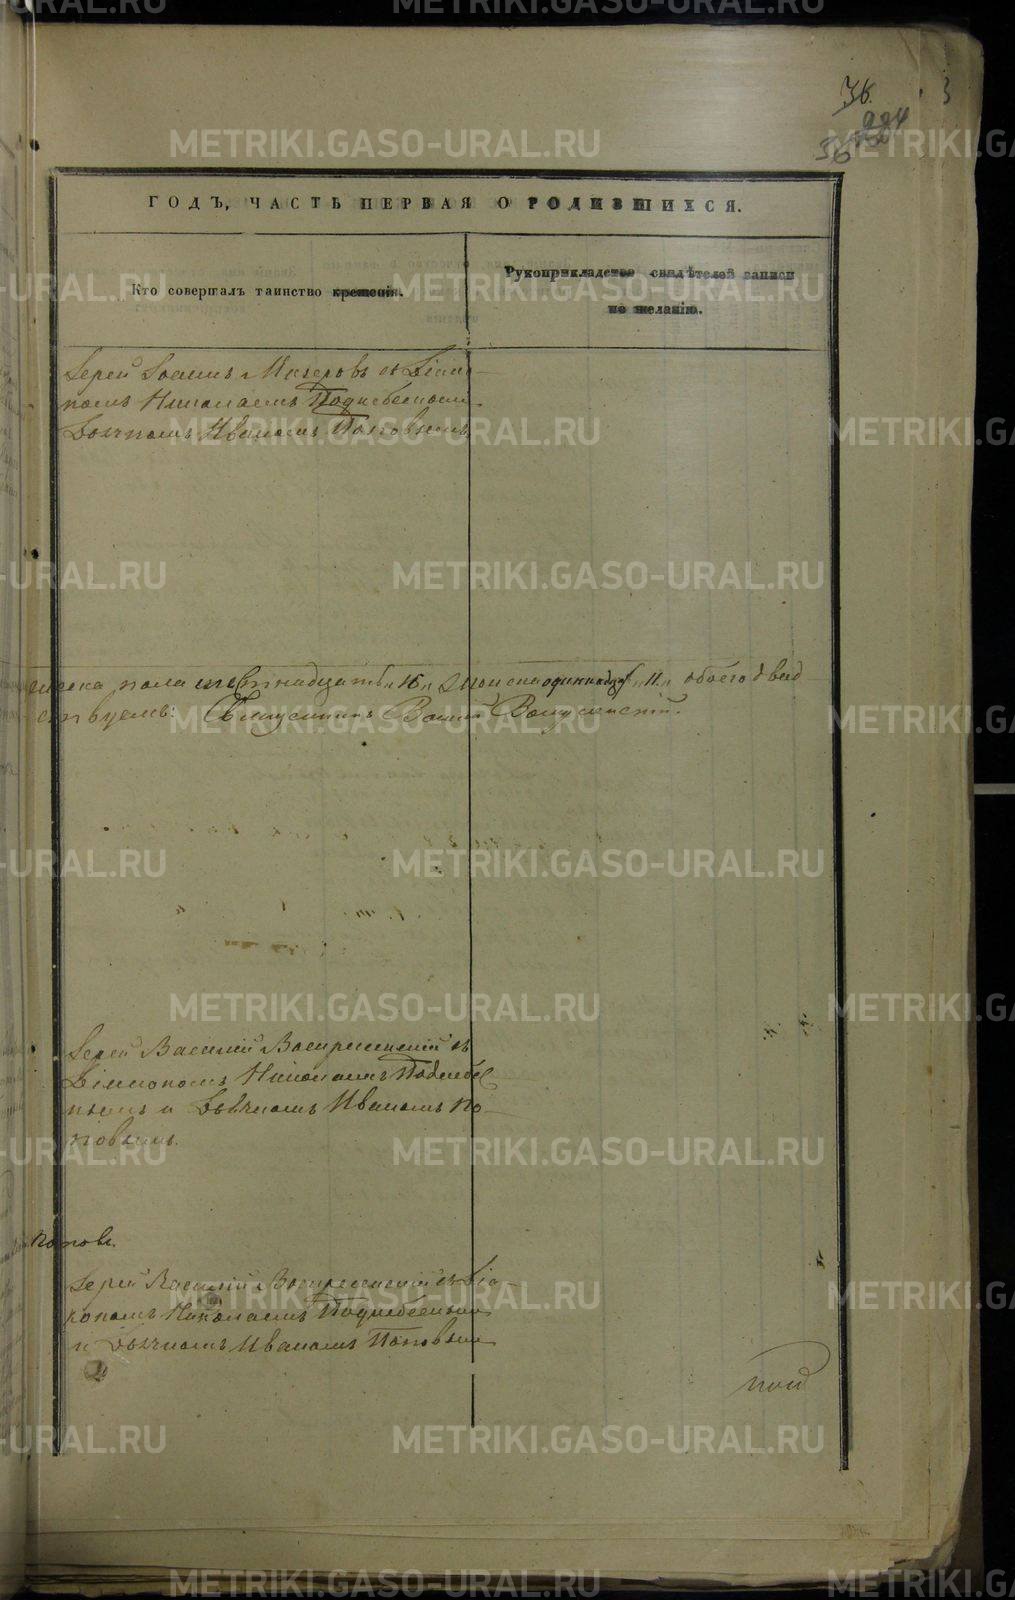 METRIKI.GASO-URAL.RU
36.
284
36
ГОДЪ, ЧАСТЬ ПЕРВАЯ О РОДИВШИХСЯ.
Кто совершалъ таинство крещенія.
Рукоприкладство свидѣтелей записи
по желанію.
Іерей Іоаннъ Мизеровъ съ Діако-
номъ Николаемъ Поднебеснымъ
Дьячкомъ Иваномъ Поповымъ
жеска пола шестнадцать „16„ одиннадцать „11„ обоего
ствуемъ: Священникъ
Іерей Василій Воскресенскій съ
Діакономъ Николаемъ Поднебес
нымъ и Дьячкомъ Иваномъ По-
повымъ.
Поповъ.
Іерей Василій Воскресенскій съ Діа-
кономъ Николаемъ Поднебеснымъ
и Дьячкомъ Иваномъ Поповымъ